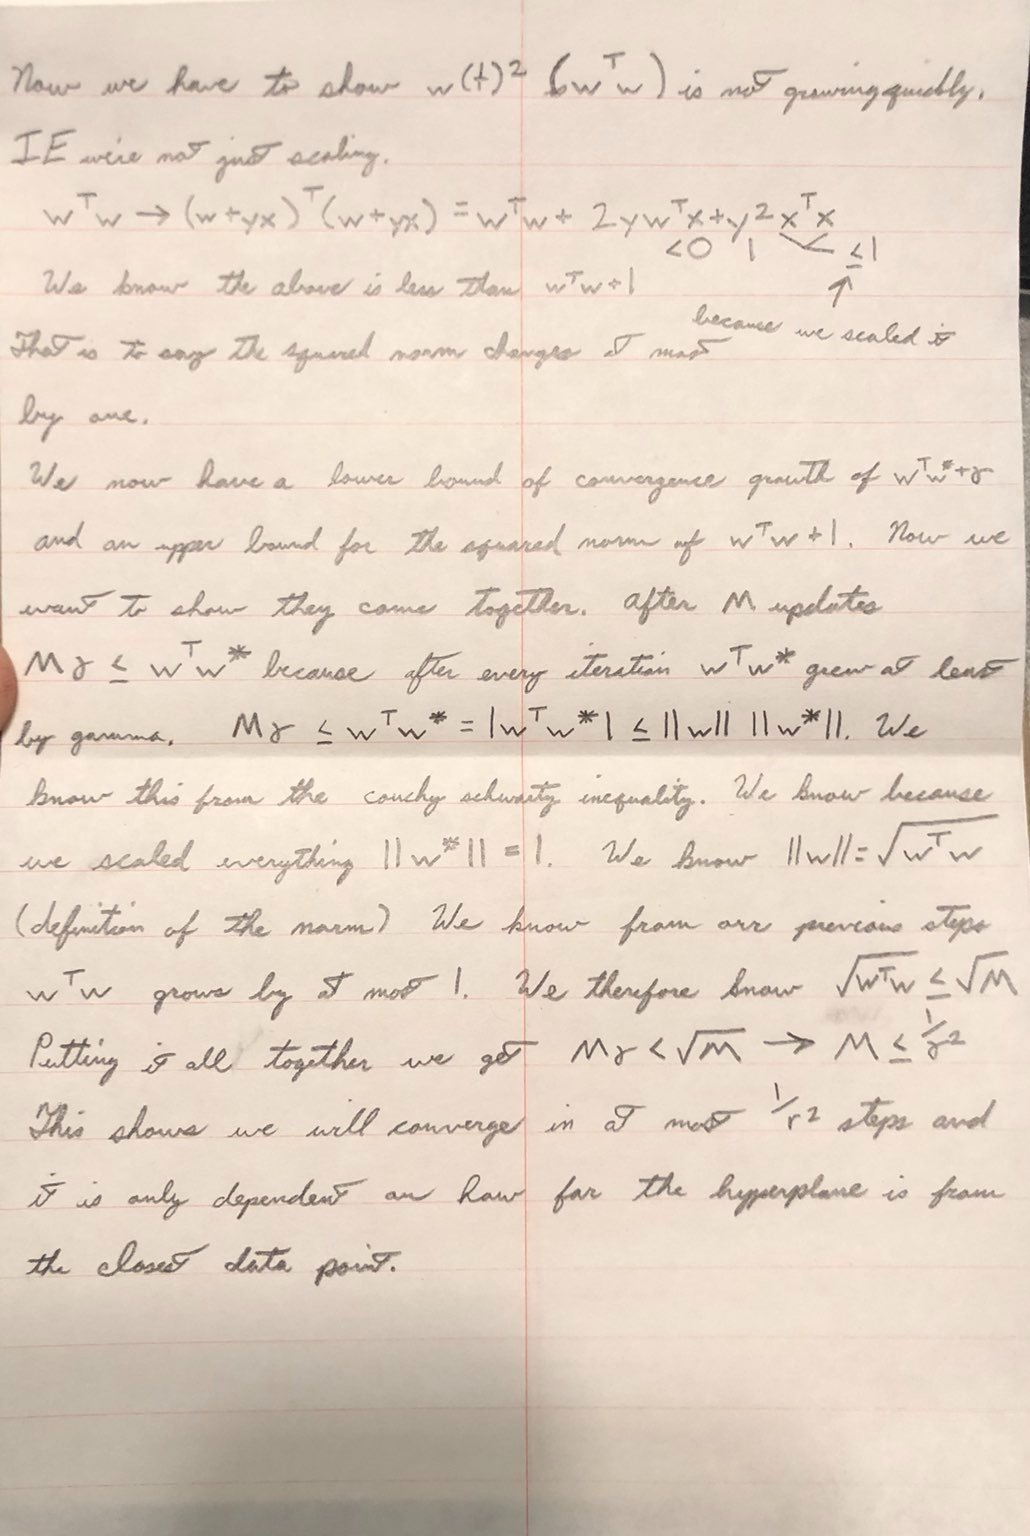 Now we have to show w(t)² (wᵀw) is not growing quickly.
IE we're not just scaling.
wᵀw → (w+yx)ᵀ(w+yx) = wᵀw + 2ywᵀx + y²xᵀx
<0 1 ≤1
We know the above is less than wᵀw+1
because we scaled it
That is to say the squared norm changes at most
by one.
We now have a lower bound of convergence growth of wᵀw*+γ
and an upper bound for the squared norm of wᵀw+1. Now we
want to show they come together. After M updates
Mγ ≤ wᵀw* because after every iteration wᵀw* grew at least
by gamma. Mγ ≤ wᵀw* = |wᵀw*| ≤ ||w|| ||w*||. We
know this from the couchy schwartz inequality. We know because
we scaled everything ||w*|| = 1. We know ||w|| = √wᵀw
(definition of the norm) We know from orr previous steps
wᵀw grows by at most 1. We therefore know √wᵀw ≤ √M
Putting it all together we get Mγ < √M → M ≤ 1/γ²
This shows we will converge in at most 1/r² steps and
it is only dependent on how far the hyperplane is from
the closest data point.